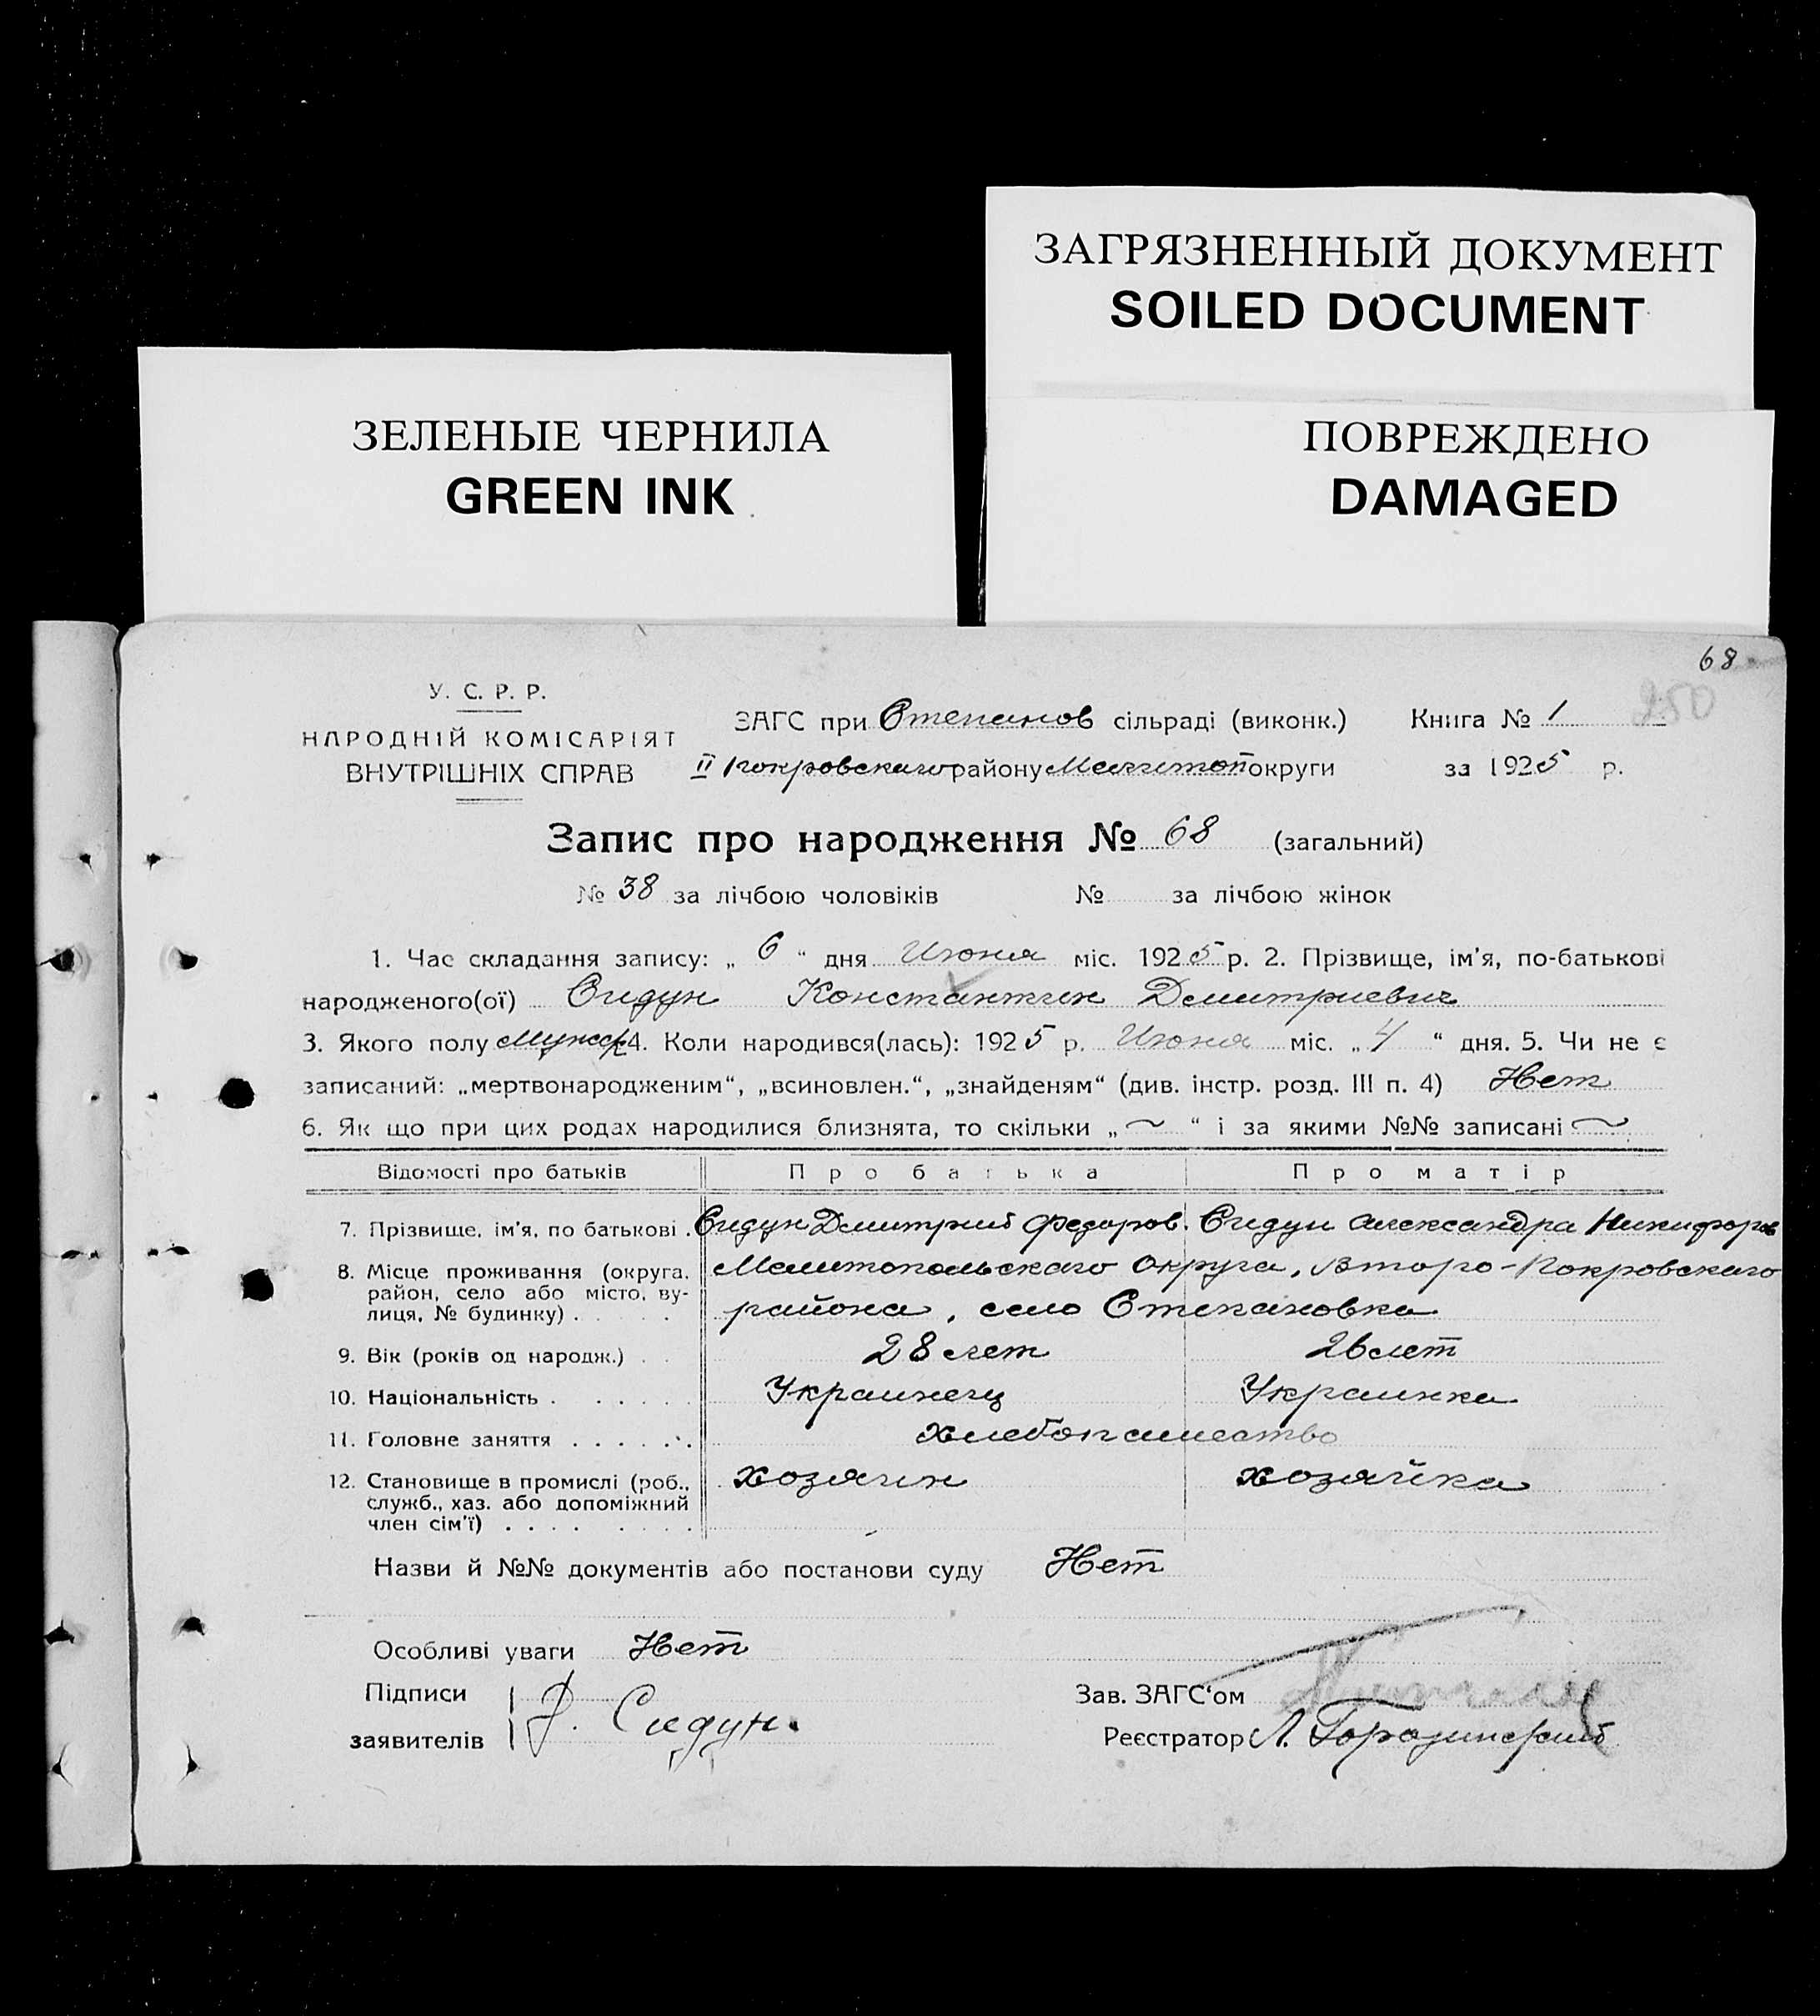 ЗАГРЯЗНЕННЫЙ ДОКУМЕНТ
SOILED DOCUMENT
ЗЕЛЕНЫЕ ЧЕРНИЛА
GREEN INK
ПОВРЕЖДЕНО
DAMAGED
68
250
У. С. Р. Р.
НАРОДНІЙ КОМІСАРІЯТ
ВНУТРІШНІХ СПРАВ
ЗАГС при Степанов сільраді (виконк.) Книга № 1
II Покровскаго району Мелитоп округи за 1925 р.
Запис про народження № 68 (загальний)
№ 38 за лічбою чоловіків № за лічбою жінок
1. Час складання запису: „ 6 “ дня Июня міс. 1925 р. 2. Прізвище, ім'я, по-батькові
народженого(ої) Сидун Константин Дмитриевич
3. Якого полу Мужск 4. Коли народився(лась): 1925 р. Июня міс. „ 4 “ дня. 5. Чи не є
записаний: „мертвонародженим“, „всиновлен.“, „знайденям“ (див. інстр. розд. III п. 4) Нет
6. Як що при цих родах народилися близнята, то скільки „ ~ “ і за якими №№ записані ~
Відомості про батьків Про батька Про матір
7. Прізвище, ім'я, по батькові . Сидун Дмитрий Федоров. Сидун Александра Никифоров
8. Місце проживання (округа, район, село або місто, вулиця, № будинку) . . . . . Мелитопольскаго Округа, Второ-Покровскаго
района, село Степановка
9. Вік (років од народж.) . . 28 лет 26 лет
10. Національність . . . . . . Украинец Украинка
11. Головне заняття . . . . . . Хлебопашество
12. Становище в промислі (роб., служб., хаз. або допоміжний член сім'ї) . . . . . . . . хозяин хозяйка
Назви й №№ документів або постанови суду Нет
Особливі уваги Нет
Підписи
заявителів Д. Сидун.
Зав. ЗАГС‘ом
Реєстратор Л. Городинский